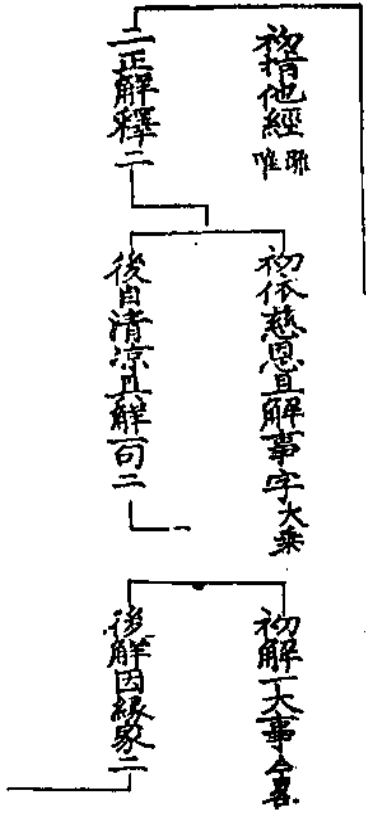 初指他經 唯
二正解釋二
初依慈恩且解事字 大乘
後自清凉具解一句二
初解一大事
後解因緣家二